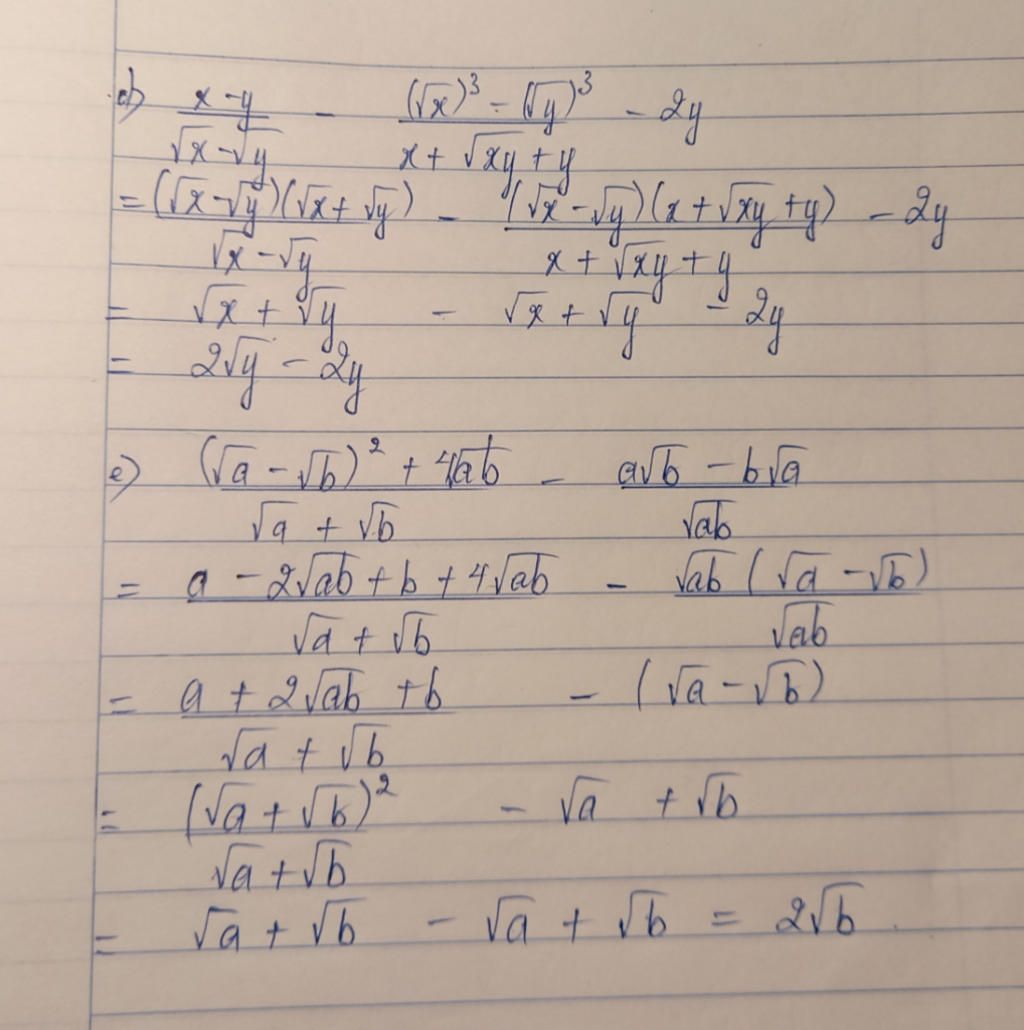 d) (x - y)/(√x - √y) - ((√x)³ - (√y)³)/(x + √xy + y) - 2y
= (√x - √y)(√x + √y)/(√x - √y) - (√x - √y)(x + √xy + y)/(x + √xy + y) - 2y
= √x + √y - √x + √y - 2y
= 2√y - 2y
e) ((√a - √b)² + 4√ab)/(√a + √b) - (a√b - b√a)/√ab
= (a - 2√ab + b + 4√ab)/(√a + √b) - √ab(√a - √b)/√ab
= (a + 2√ab + b)/(√a + √b) - (√a - √b)
= (√a + √b)²/(√a + √b) - √a + √b
= √a + √b - √a + √b = 2√b